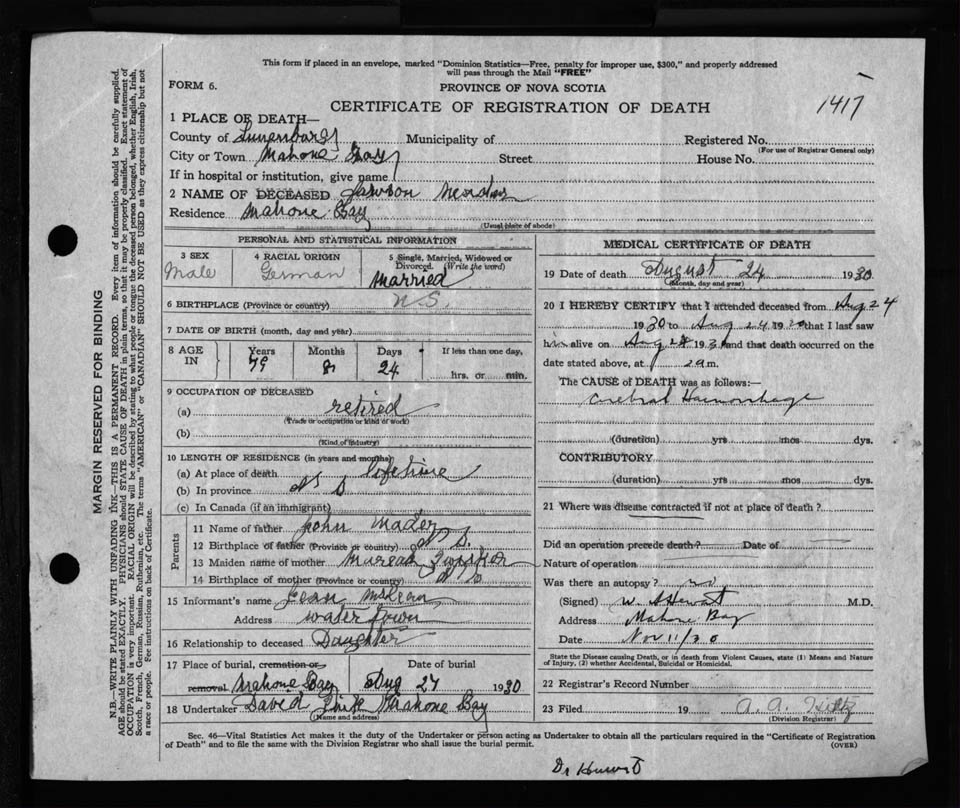 This form if placed in an envelope, marked "Dominion Statistics—Free, penalty for improper use, $300," and properly addressed
will pass through the Mail "FREE"
FORM 6.
PROVINCE OF NOVA SCOTIA
CERTIFICATE OF REGISTRATION OF DEATH
1417
1 PLACE OF DEATH—
County of Lunenburg Municipality of Registered No.
(For use of Registrar General only)
City or Town Mahone Bay Street House No.
If in hospital or institution, give name
2 NAME OF DECEASED
Residence Mahone Bay
(Usual place of abode)
PERSONAL AND STATISTICAL INFORMATION
3 SEX
Male
4 RACIAL ORIGIN
German
5 Single, Married, Widowed or
Divorced. (Write the word)
Married
6 BIRTHPLACE (Province or country) N.S.
7 DATE OF BIRTH (month, day and year)
8 AGE
IN
Years Months Days If less than one day,
79 8 24
hrs. or min.
9 OCCUPATION OF DECEASED
(a) retired
(Trade or occupation or kind of work)
(b)
(Kind of industry)
10 LENGTH OF RESIDENCE (in years and months)
(a) At place of death lifetime
(b) In province N S
(c) In Canada (if an immigrant)
Parents
11 Name of father John Mader
12 Birthplace of father (Province or country) N S.
13 Maiden name of mother
14 Birthplace of mother (Province or country) N S
15 Informant's name McLean
Address
16 Relationship to deceased Daughter
17 Place of burial, cremation or Date of burial
removal Mahone Bay Aug 27 1930
18 Undertaker David Mahone Bay
(Name and address)
MEDICAL CERTIFICATE OF DEATH
19 Date of death August 24 1930
(Month, day and year)
20 I HEREBY CERTIFY that I attended deceased from Aug 24
1930 to Aug 24 1930 that I last saw
him alive on Aug 24 1930 and that death occurred on the
date stated above, at m.
The CAUSE of DEATH was as follows:—
Crebral Haemorrhage
(duration) yrs mos dys.
CONTRIBUTORY
(duration) yrs mos dys.
21 Where was disease contracted if not at place of death?
Did an operation precede death? Date of
Nature of operation
Was there an autopsy? no
(Signed) M.D.
Address Mahone Bay
Date Nov 11/30
State the Disease causing Death, or in death from Violent Causes, state (1) Means and Nature
of Injury, (2) whether Accidental, Suicidal or Homicidal.
22 Registrar's Record Number
23 Filed 19 A. A. Hiltz
(Division Registrar)
Sec. 46—Vital Statistics Act makes it the duty of the Undertaker or person acting as Undertaker to obtain all the particulars required in the "Certificate of Registration
of Death" and to file the same with the Division Registrar who shall issue the burial permit.
(OVER)
MARGIN RESERVED FOR BINDING
N.B.—WRITE PLAINLY WITH UNFADING INK—THIS IS A PERMANENT RECORD. Every item of information should be carefully supplied.
AGE should be stated EXACTLY. PHYSICIANS should STATE CAUSE OF DEATH in plain terms, so that it may be properly classified. Exact statement of
OCCUPATION is very important. RACIAL ORIGIN will be described by stating to what people or tongue the deceased person belonged, whether English, Irish,
Scotch, French, German, Russian, Ruthenian, etc. The terms "AMERICAN" or "CANADIAN" SHOULD NOT BE USED as they express citizenship but not
a race or people. See instructions on back of Certificate.